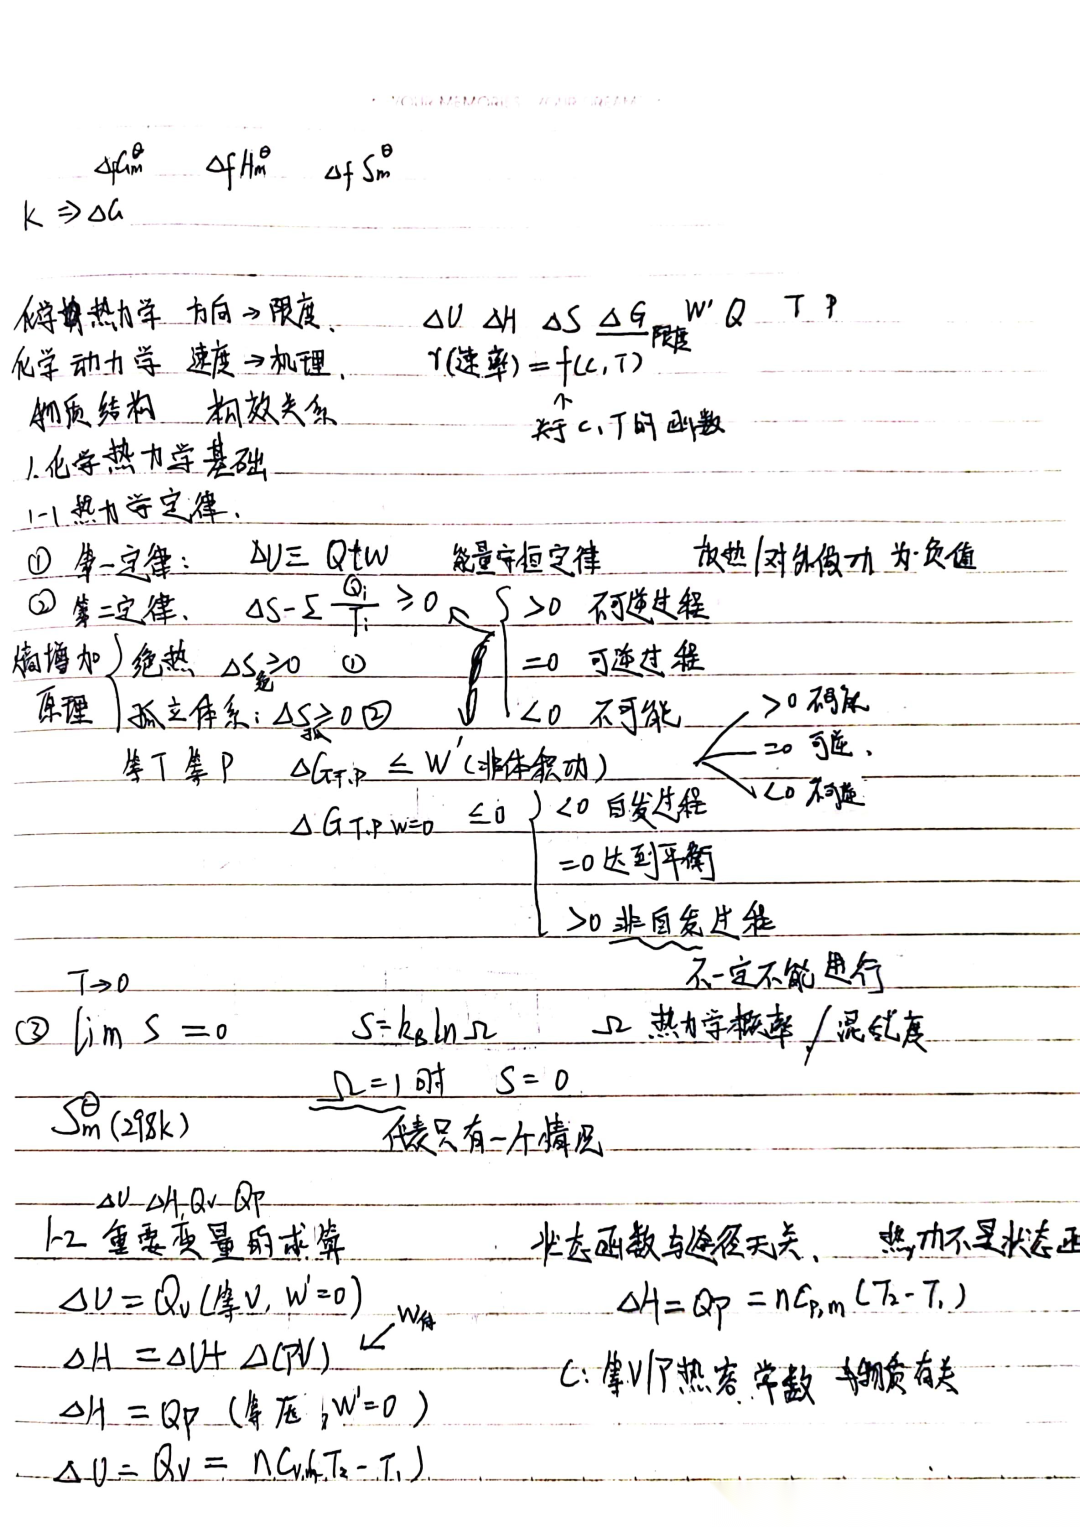 YOUR MEMORIES YOUR DREAM
ΔfGm^θ ΔfHm^θ ΔfSm^θ
K ⇒ ΔG
化学热力学 方向→限度. ΔU ΔH ΔS ΔG限度 W' Q T P
化学动力学 速度→机理. r(速率)=f(c,T)
物质结构 构效关系 ↑
关于c,T的函数
1.化学热力学基础
1-1热力学定律.
① 第一定律: ΔU≡Q+W 能量守恒定律 放热/对外做功为负值
② 第二定律. ΔS-Σ Qi/Ti ≥0 { >0 不可逆过程
熵增加原理 { 绝热 ΔS绝≥0 ① =0 可逆过程
孤立体系: ΔS孤≥0 ② <0 不可能 >0 不可能
等T等P ΔG_T.P ≤ W'(非体积功) =0 可逆.
<0 不可逆
ΔG_T.P W=0 ≤0 { <0 自发过程
=0达到平衡
>0 非自发过程
不一定不能进行
T→0
③ lim S =0 S=k_B lnΩ Ω 热力学概率/混乱度
Ω=1时 S=0
Sm^θ(298k) 代表只有一个情况
ΔU ΔH Qv Qp
1-2 重要变量的求算 状态函数与途径无关. 热,功不是状态函
ΔU=Qv(等V, W'=0) ΔH=Qp=nCp,m(T2-T1)
ΔH=ΔU+Δ(PV) ↙W体
C:等V/P热容.常数 与物质有关
ΔH=Qp (等压; W'=0)
ΔU=Qv= nCv,m(T2-T1)